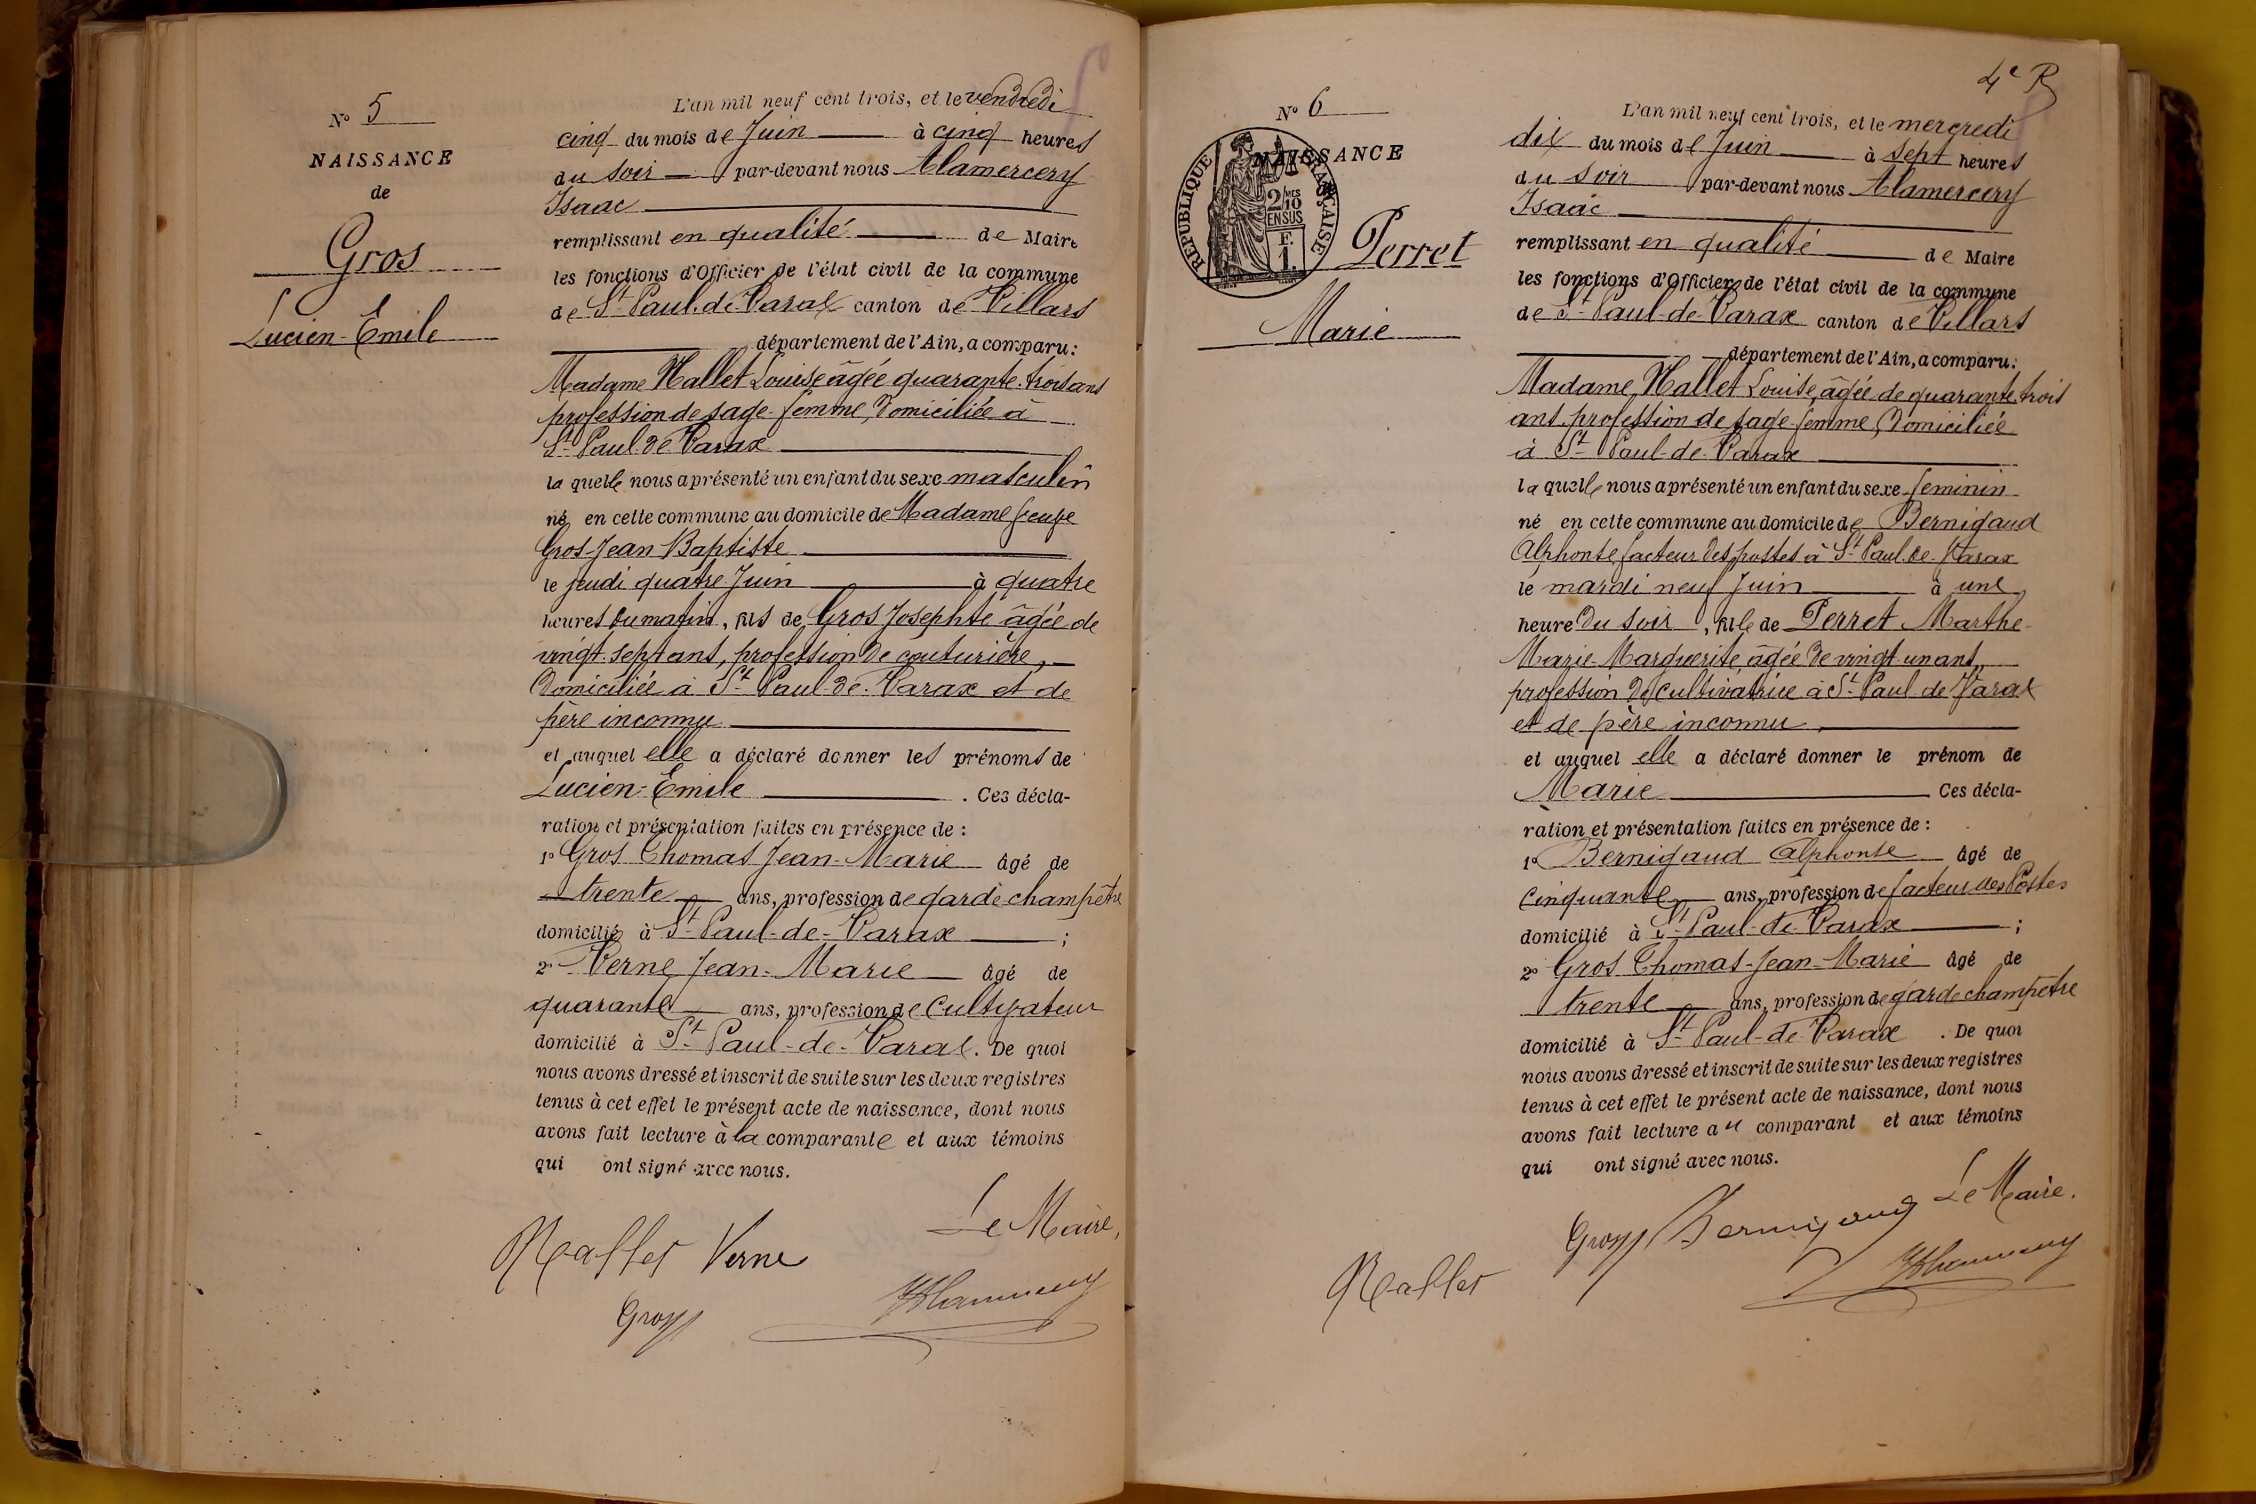 N° 5
NAISSANCE
de
Gros
Lucien-Emile
L'an mil neuf cent trois, et le vendredi
cinq du mois de Juin à cinq heures
du soir par-devant nous Alamercery
Isaac
remplissant en qualité de Maire
les fonctions d'Officier de l'état civil de la commune
de St Paul-de-Varax canton de Villars
département de l'Ain, a comparu:
Madame Hallet Louise âgée quarante-trois ans
profession de sage-femme, domiciliée à
St Paul de Varax
laquelle nous a présenté un enfant du sexe masculin
né en cette commune au domicile de Madame Veuve
Gros Jean Baptiste
le jeudi quatre Juin à quatre
heures du matin, fils de Gros Josephte âgée de
vingt-sept ans, profession de couturière,
domiciliée à St Paul-de-Varax et de
père inconnu
et auquel elle a déclaré donner les prénoms de
Lucien-Emile. Ces décla-
ration et présentation faites en présence de :
1° Gros Thomas Jean-Marie âgé de
trente ans, profession de garde-champêtre
domicilié à St Paul-de-Varax ;
2° Verne Jean-Marie âgé de
quarante ans, profession de Cultivateur
domicilié à St Paul-de-Varax. De quoi
nous avons dressé et inscrit de suite sur les deux registres
tenus à cet effet le présent acte de naissance, dont nous
avons fait lecture à la comparante et aux témoins
qui ont signé avec nous.
Le Maire,
Hallet Verne
Gros
4e R
N° 6
NAISSANCE
RÉPUBLIQUE FRANÇAISE
2/10 MES
EN SUS
F.
1.
Perret
Marie
L'an mil neuf cent trois, et le mercredi
dix du mois de Juin à sept heures
du soir par-devant nous Alamercery
Isaac
remplissant en qualité de Maire
les fonctions d'Officier de l'état civil de la commune
de St Paul-de-Varax canton de Villars
département de l'Ain, a comparu:
Madame Hallet Louise, âgée de quarante trois
ans, profession de sage-femme, domiciliée
à St Paul-de-Varax
laquelle nous a présenté un enfant du sexe feminin
né en cette commune au domicile de Bernigaud
Alphonse facteur des postes à St Paul de Varax
le mardi neuf Juin à une
heure du soir, fille de Perret Marthe
Marie-Marguerite, âgée de vingt-un ans,
profession de cultivatrice à St Paul de Varax
et de père inconnu
et auquel elle a déclaré donner le prénom de
Marie Ces décla-
ration et présentation faites en présence de :
1° Bernigaud Alphonse âgé de
cinquante ans, profession de facteur des Postes
domicilié à St Paul-de-Varax ;
2° Gros Thomas-Jean-Marie âgé de
trente ans, profession de garde champêtre
domicilié à St Paul-de-Varax. De quoi
nous avons dressé et inscrit de suite sur les deux registres
tenus à cet effet le présent acte de naissance, dont nous
avons fait lecture au comparant et aux témoins
qui ont signé avec nous.
Le Maire.
Gros Bernigaud
Hallet